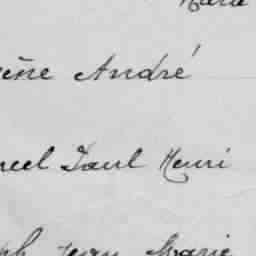 Marie
ène André
rcel Paul Henri
ph Jean Marie